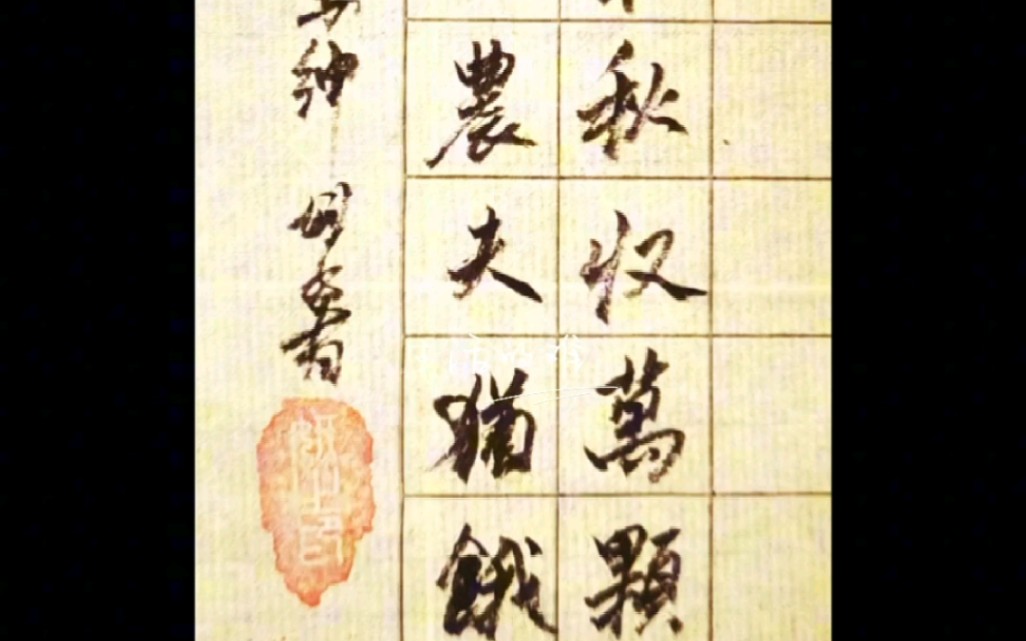 秋収萬顆
農夫猶餓
紳 書